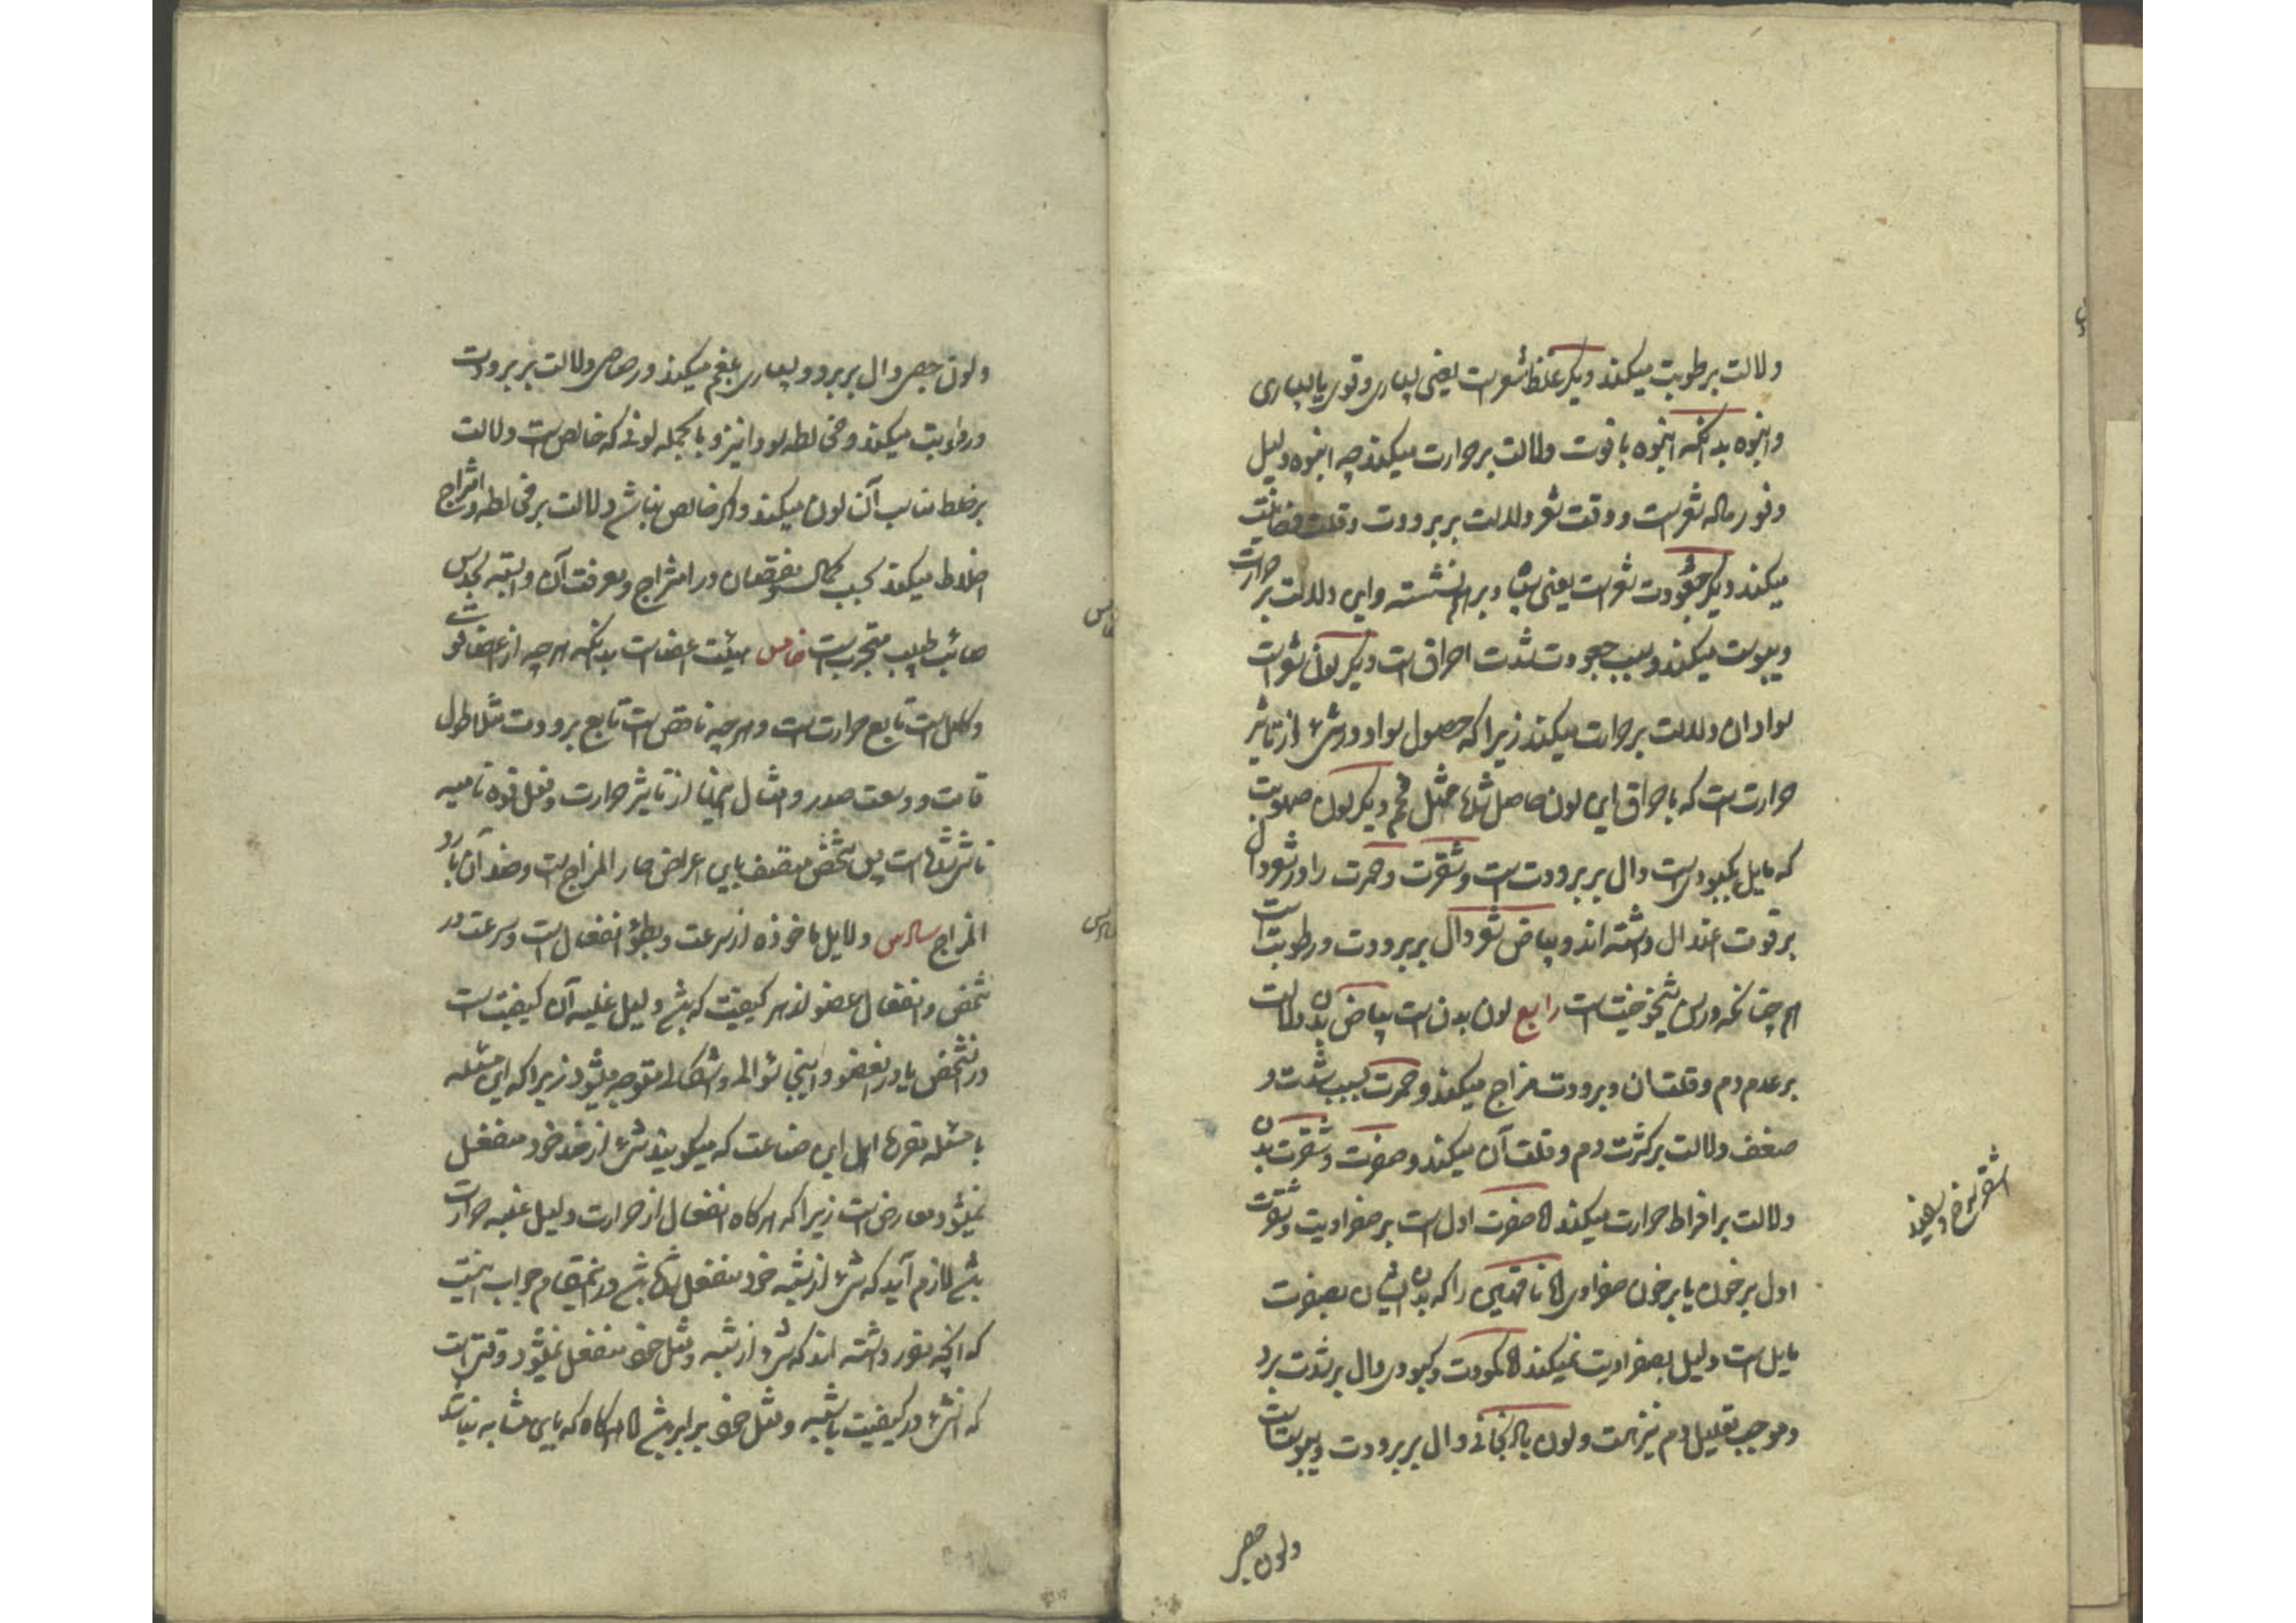 دلالت بر رطوبت میکند دیگر غلظ شعرست یعنی بسیاری و قوی یا بسیاری
وانبوه بدانکه انبوه با قوت دلالت بر حرارت میکند چه انبوه دلیل
وفور ماده شعرست و وقت شعر دلالت بر برودت و قلت دخانیت
میکند دیگر جعودت شعرست یعنی برهم نشسته و این دلالت بر حرارت
و یبوست میکند و سبب جعودت شدت احراق است دیگر لون شعر است
سواد آن دلالت بر حرارت میکند زیرا که حصول سواد در شئ از تاثیر
حرارت است که باحراق این لون حاصل شده مثل فحم دیگر لون صهوبت
که مایل بکبودیست دال بر برودت است و شقرت و حمرت را در شعر دال
بر قوت اعتدال داشته اند و بیاض شعر دال بر برودت و رطوبت است
همچنانکه در سن شیخوخیت است رابع لون بدن است بیاض بدن دلالت
بر عدم دم و قلت آن و برودت مزاج میکند و حمرت بسبب شدت و
ضعف دلالت بر کثرت دم و قلت آن میکند و صفرت و شقرت بدن
دلالت بر افراط حرارت میکند اما صفرت اول است بر صفراویت و شقرت
اول بر خون یا بر خون صفراوی اما ناقهین را که بدن ایشان بصفرت
مایل است دلیل بصفراویت نمیکند اما کمودت و کبودی دال بر شدت برد
و موجب تقلیل دم نیز هست و لون بادنجانی دال بر برودت و یبوست است
ولون جصی
ولون جصی دال بر برد و بسیاری بلغم میکند و رصاصی دلالت بر برودت
و رطوبت میکند و مخالطه سودا نیز و بالجمله لونی که خالص است دلالت
بر خلط مناسب آن لون میکند و اگر خالص نباشد دلالت بر مخالطه و امتزاج
اخلاط میکند بحسب کمال و نقصان در امتزاج و معرفت آن وابسته بحدس
صائب طبیب متجرب است خامس هیئت اعضاست بدانکه هر چه از اعضا قوی
و کامل است تابع حرارت است و هر چه ناقص است تابع برودت مثلا طول
قامت و وسعت صدر و امثال اینها از تاثیر حرارت و فعل قوه نامیه
ناشی شده است پس شخص متصف باین اعراض حار المزاج است و ضد آن بارد
المزاج سادس دلایل ماخوذه از سرعت و بطؤ انفعال است و سرعت در
شخص و انفعال عضو از هر کیفیت که باشد دلیل غلبه آن کیفیت است
در آن شخص یا در آن عضو و اینجا سؤالی و اشکالی متوجه میشود زیرا که این مسئله
با مسئله مقرره اهل این صناعت که میکویند شئ از ضد خود منفعل
میشود معارض است زیرا که هرکاه انفعال از حرارت دلیل غلبه حرارت
باشد لازم آید که شئ از شبیه خود منفعل شده باشد در این مقام جواب اینست
که آنچه مقرر داشته اند که شئ از شبیه و مثل خود منفعل نمیشود وقتی است
که آن شئ در کیفیت با شبیه و مثل خود برابر باشد اما هرکاه که باین مشابه نباشد
خامس
سادس